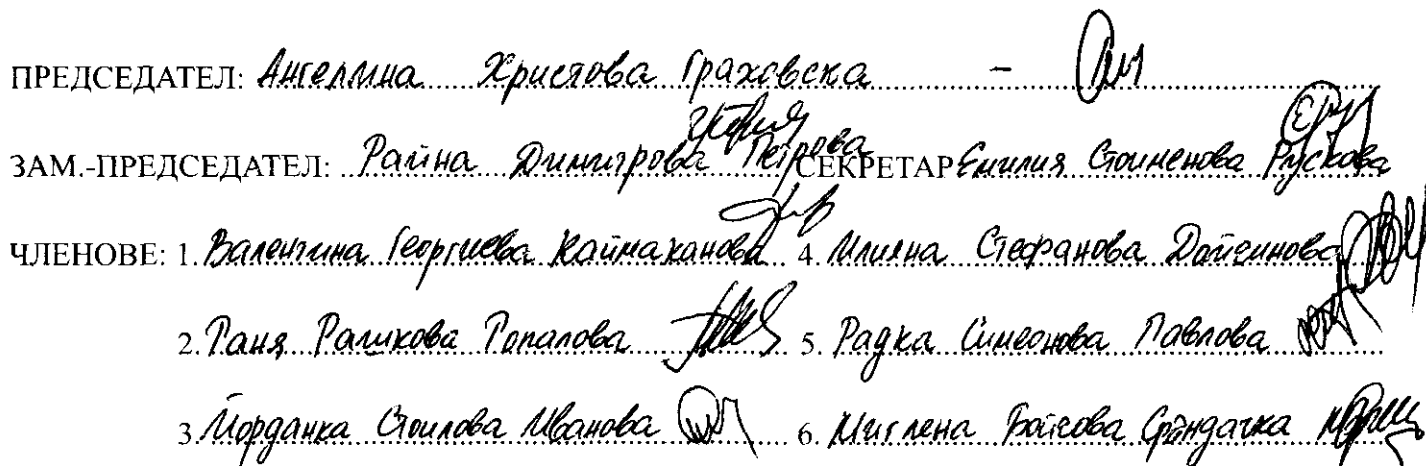 ПРЕДСЕДАТЕЛ: Ангелина Христова Граховска -
ЗАМ.-ПРЕДСЕДАТЕЛ: Райна Димитрова Петрова СЕКРЕТАР Емилия Стоименова Рускова
ЧЛЕНОВЕ: 1. Валентина Георгиева Каймаканова 4. Илияна Стефанова Дойчинова
2. Ваня Рашкова Ропалова 5. Радка Симеонова Павлова
3. Йорданка Стоилова Иванова 6. Миглена Бойкова